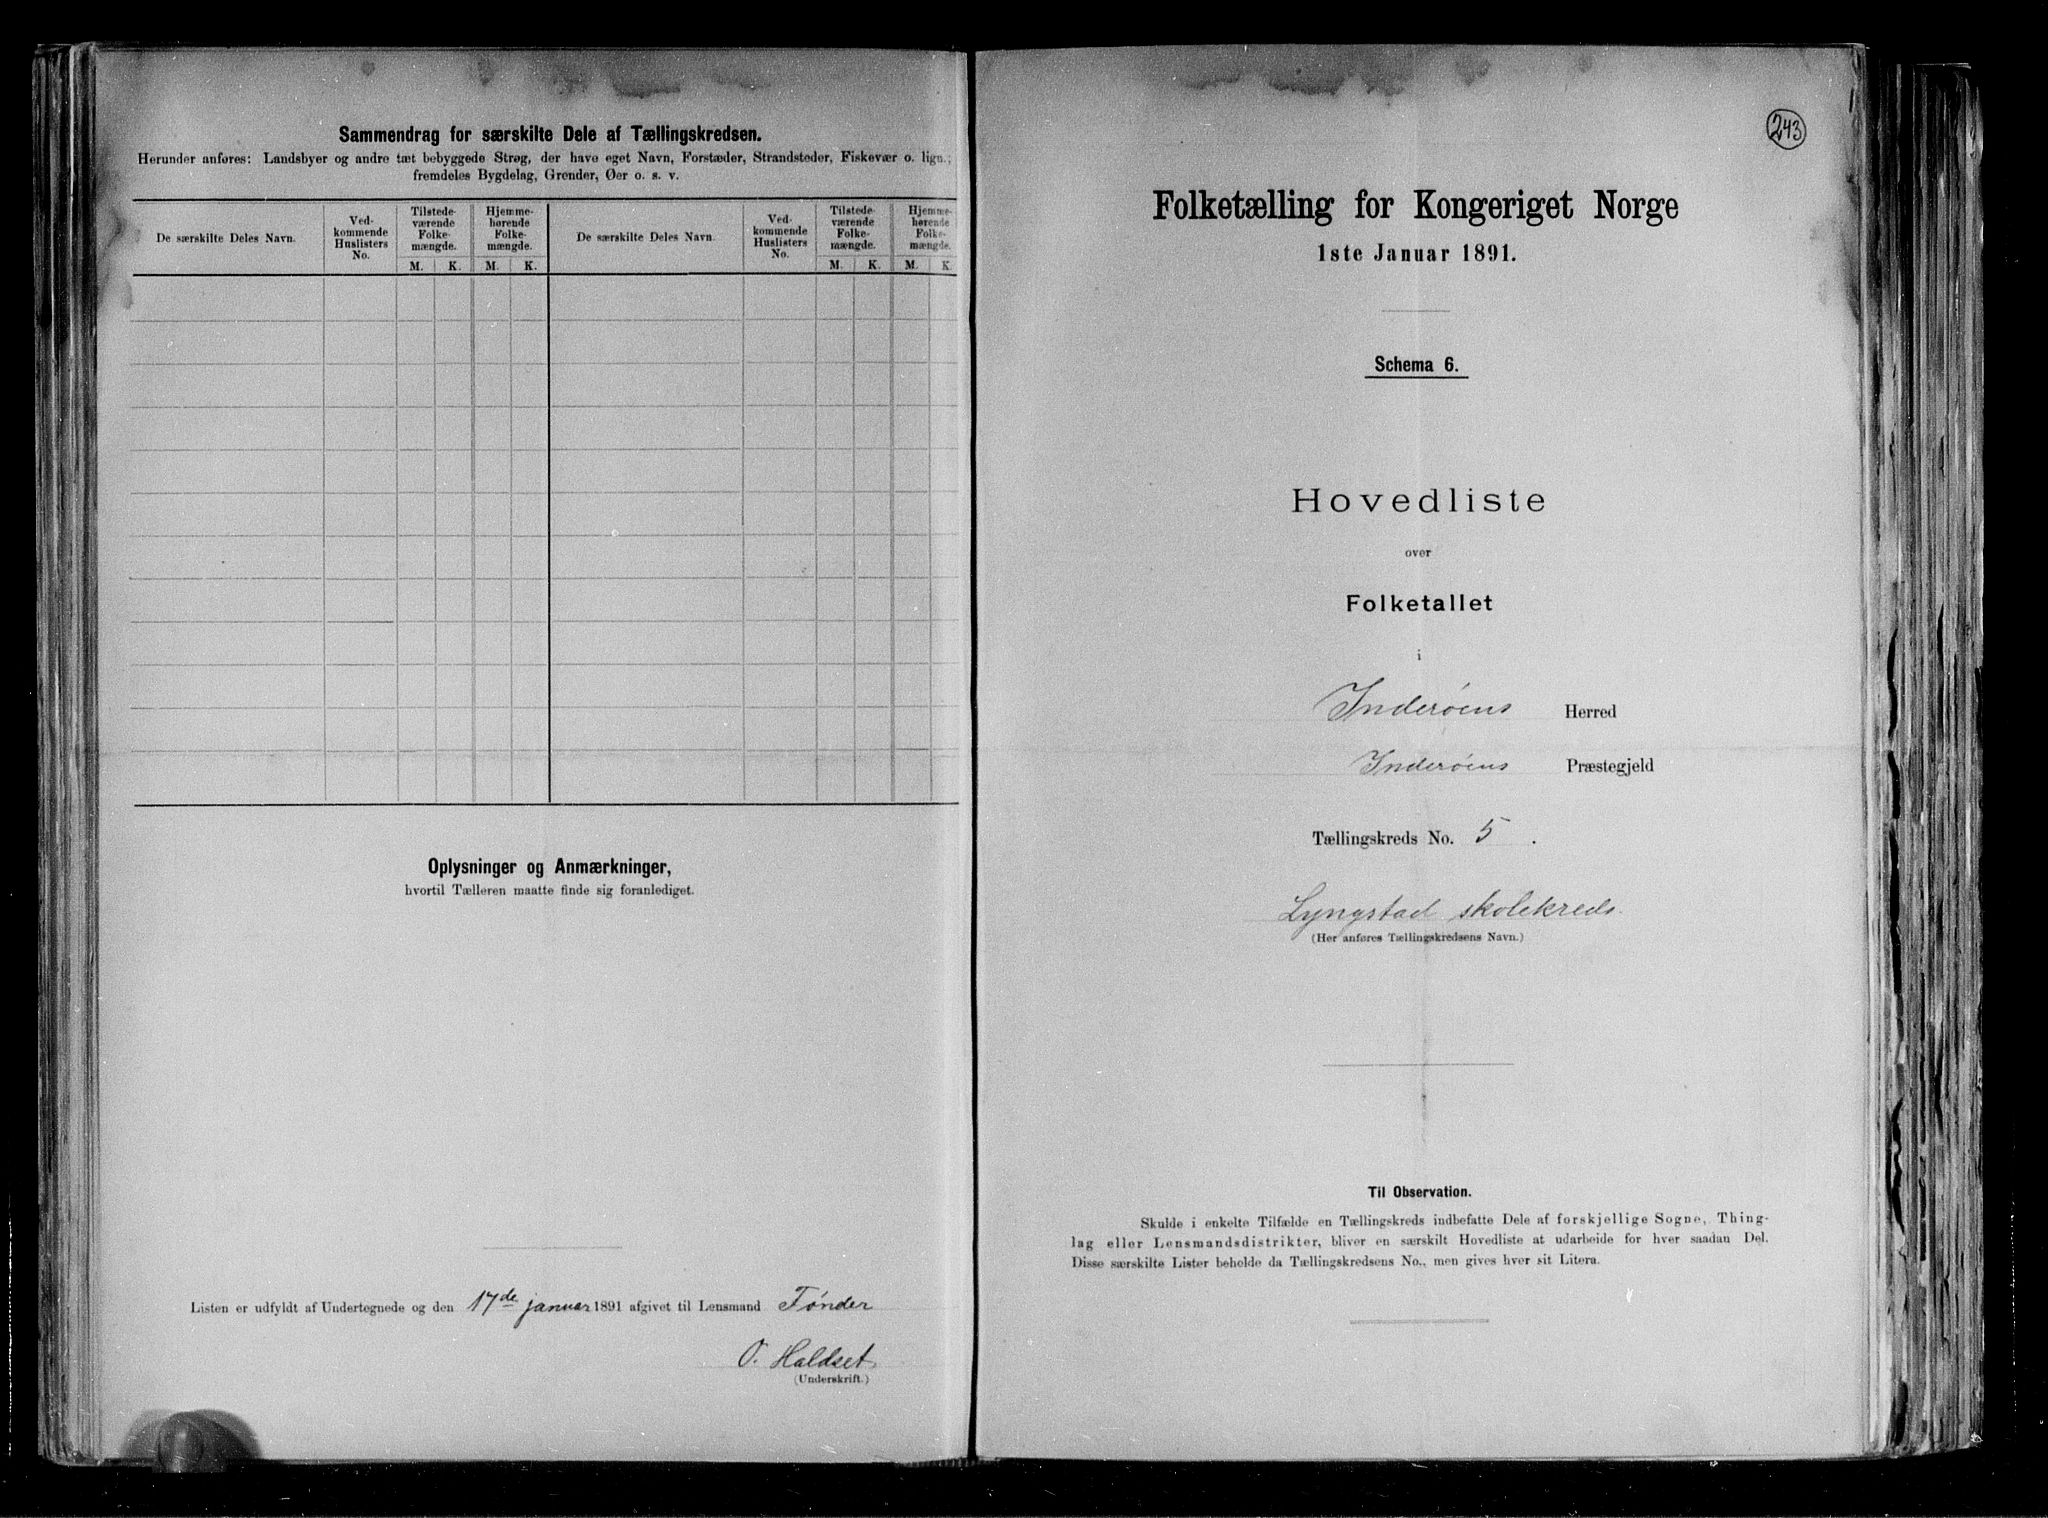 Sammendrag for særskilte Dele af Tællingskredsen.
Herunder anføres: Landsbyer og andre tæt bebyggede Strøg, der have eget Navn, Forstæder, Strandsteder, Fiskevær o. lign.;
fremdeles Bygdelag, Grender, Øer o. s. v.
De særskilte Deles Navn.
Ved-
kommende
Huslisters
No.
Tilstede-
værende
Folke-
mængde.
Hjemme-
hørende
Folke-
mængde.
M. K. M. K.
De særskilte Deles Navn.
Ved-
kommende
Huslisters
No.
Tilstede-
værende
Folke-
mængde.
Hjemme-
hørende
Folke-
mængde.
M. K. M. K.
Oplysninger og Anmærkninger,
hvortil Tælleren maatte finde sig foranlediget.
Listen er udfyldt af Undertegnede og den 17de januar 1891 afgivet til Lensmand Tønder
O. Haldset
(Underskrift.)
243
Folketælling for Kongeriget Norge
1ste Januar 1891.
Schema 6.
Hovedliste
over
Folketallet
i
Inderøens Herred
Inderøens Præstegjeld
Tællingskreds No. 5.
Lyngstad skolekreds.
(Her anføres Tællingskredsens Navn.)
Til Observation.
Skulde i enkelte Tilfælde en Tællingskreds indbefatte Dele af forskjellige Sogne, Thing-
lag eller Lensmandsdistrikter, bliver en særskilt Hovedliste at udarbeide for hver saadan Del.
Disse særskilte Lister beholde da Tællingskredsens No., men gives hver sit Litera.